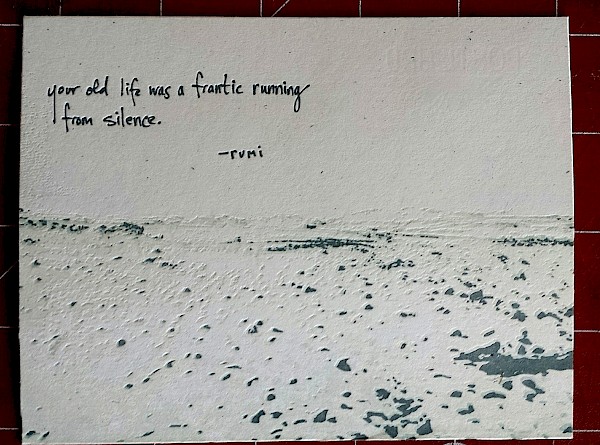 your old life was a frantic running
from silence.
-rumi